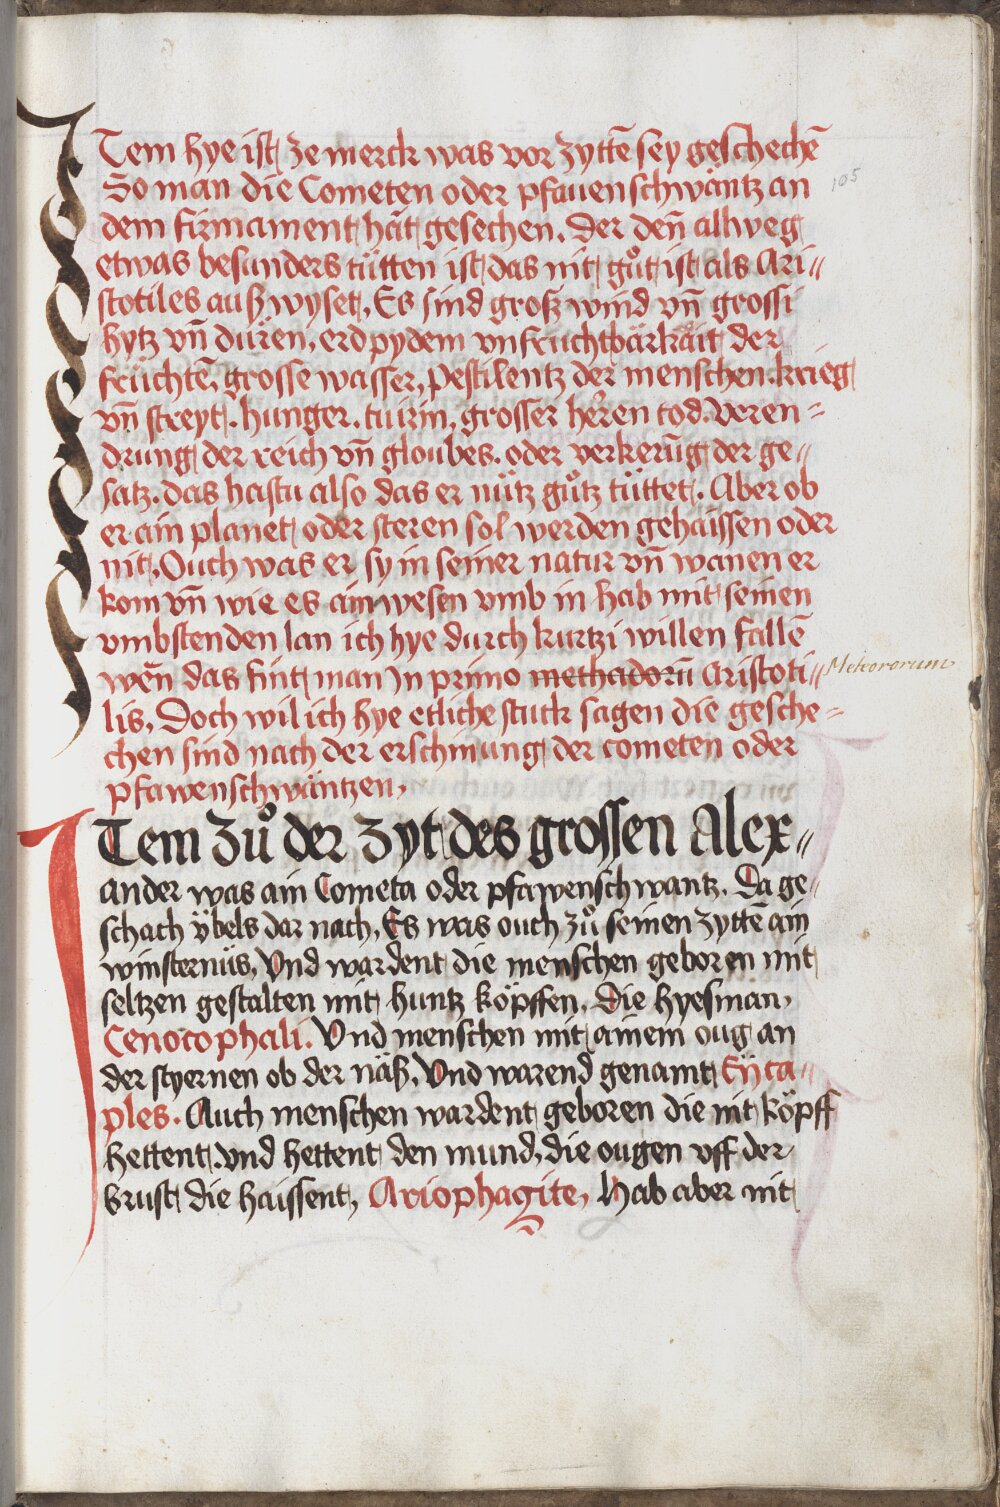 ITem hye ist ze merck was vor zyttē sey geschechē
So man die Cometen oder pfauenschwäntz an
105
dem firmament hät gesechen. Der deñ allweg
etwas besunders tütten ist das nit gůt ist als Ari//
stotiles auß wyset, Es sind groß wind vñ grossi
hytz vñ düren, erdpydem vnfruchtbärkäit der
fruchtē, grosse wasser, pestilentz der menschen. krieg
vñ streyt. hunger. tuirin, grosser herren tod. veren=
drung der reich vñ gloubes. oder verkerūg der ge//
satz. das hastu also das er nütz gůtz tüttet. Aber ob
er ain planet oder steren sol werden gehaissen oder
nit, Ouch was er sy in seiner natur vñ wanen er
kom vñ wie es ain wesen vmb in hab mit seinen
vmbstenden lan ich hye durch kurtzi willen fallē
wēn das fint man in primo methadorū Aristoti//
Meteororum
lis, Doch wil ich hye etliche stuck sagen die gesche=
chen sind nach der erschinung der cometen oder
pfawenschwäntzen,
ITem Zů der zyt des grossen Alex//
ander was ain Cometa oder pfawenschwantz. Da ge//
schach übels dar nach, Es was ouch zů seinen zyttē ain
winsternüs, Vnd wardent die menschen geboren mit
seltzen gestalten mit huntz köpffen, Die hyesman,
Cenocophali. Vnd menschen mit ainem oug an
der styernen ob der näß, Vnd warend genamt Eÿcta//
ples. Auch menschen wardent geboren die nit köpff
hettent. vnd hettent den mund, die ougen vff der
brust die haissent, Ariophagite, Hab aber nit